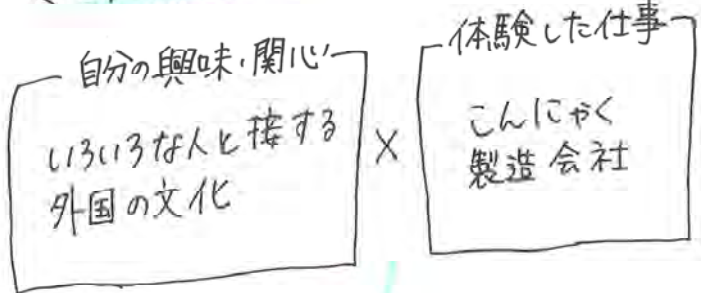 自分の興味・関心
いろいろな人と接する
外国の文化
×
体験した仕事
こんにゃく
製造会社